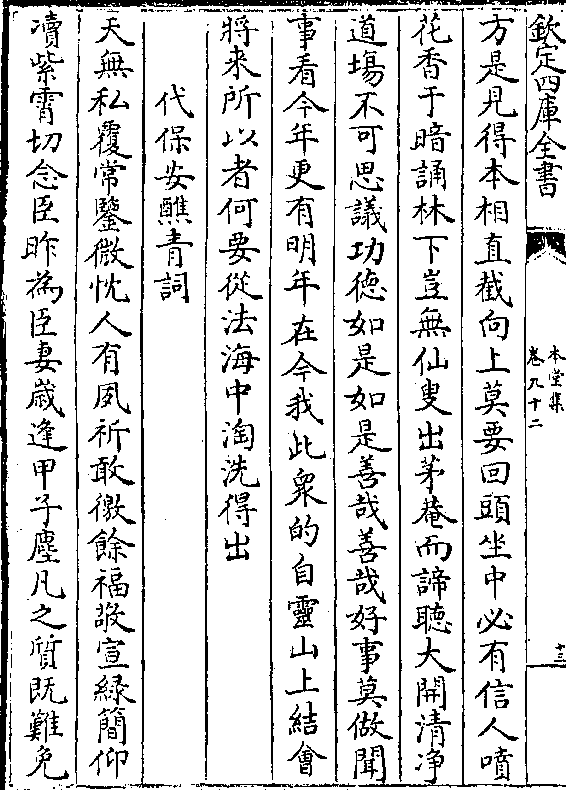 欽定四庫全書
本堂集
卷九十二
十三
方是見得本相直截向上莫要回頭坐中必有信人噴
花香于暗誦林下豈無仙叟出茅菴而諦聽大開清净
道塲不可思議功德如是如是善哉善哉好事莫做聞
事看今年更有明年在今我此衆的自靈山上結會
將来所以者何要從法海中淘洗得出
代保安醮青詞
天無私覆常鑒微忱人有夙祈敢徼餘福敬宣緑簡仰
凟紫霄切念臣昨為臣妻歲逢甲子塵凡之質既難免